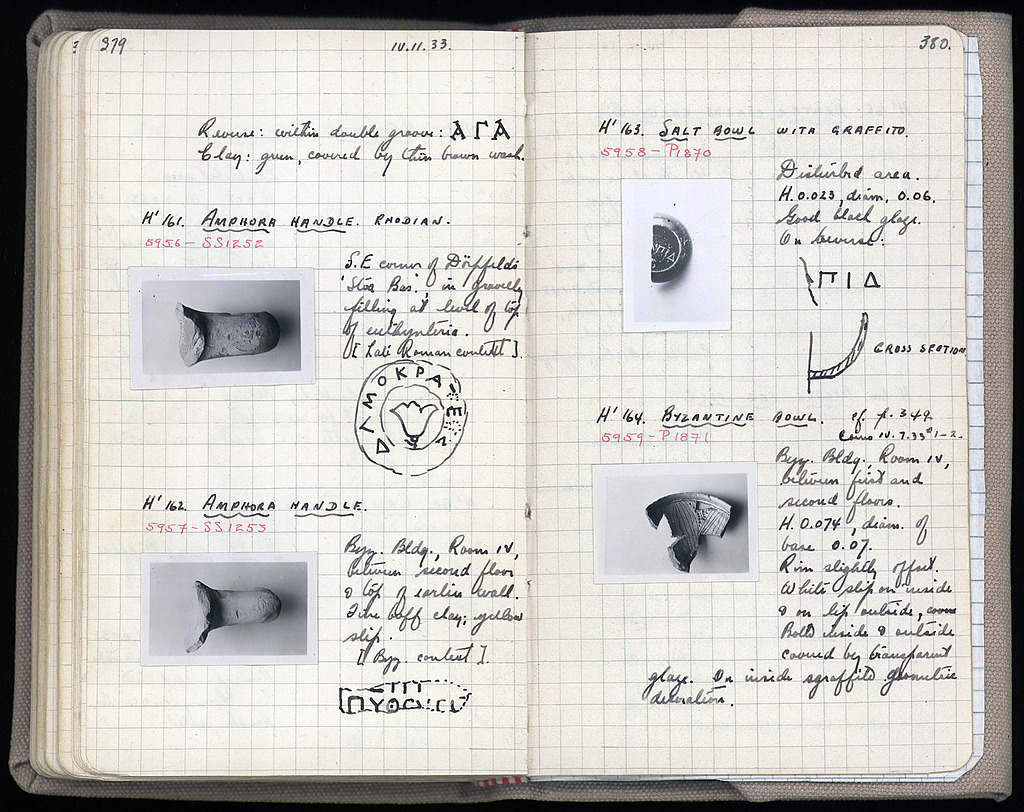 379
IV.11.33.
Reverse: within double groove: ΑΓΑ
Clay: green, covered by thin brown wash.
H' 161. AMPHORA HANDLE. RHODIAN.
5956 - SS1252
S.E corner of Dörpfeld's
'Stoa Bas.' in gravelly
filling at level of top
of euthynteria.
[Late Roman context].
ΔΑΜΟΚΡΑ ΕΥ
H' 162. AMPHORA HANDLE.
5957 - SS1253
Byz. Bldg., Room IV,
between second floor
& top of earlier wall.
Fine buff clay; yellow
slip.
[Byz. context].
ΠΥΘΟ
380.
H' 163. SALT BOWL WITH GRAFFITO.
5958 - P1870
Disturbed area.
H. 0.023, diam. 0.06.
Good black glaze.
On reverse:
ΠΙΔ
CROSS SECTION
H' 164. BYZANTINE BOWL. cf. p. 349
Coins IV.7.33 #1-2-
5959 - P1871
Byz. Bldg. Room IV,
between first and
second floors.
H. 0.074, diam. of
base 0.07.
Rim slightly offset.
White slip on inside
& on lip outside,
Both inside & outside
covered by transparent
glaze. On inside sgraffito geometric
decoration.